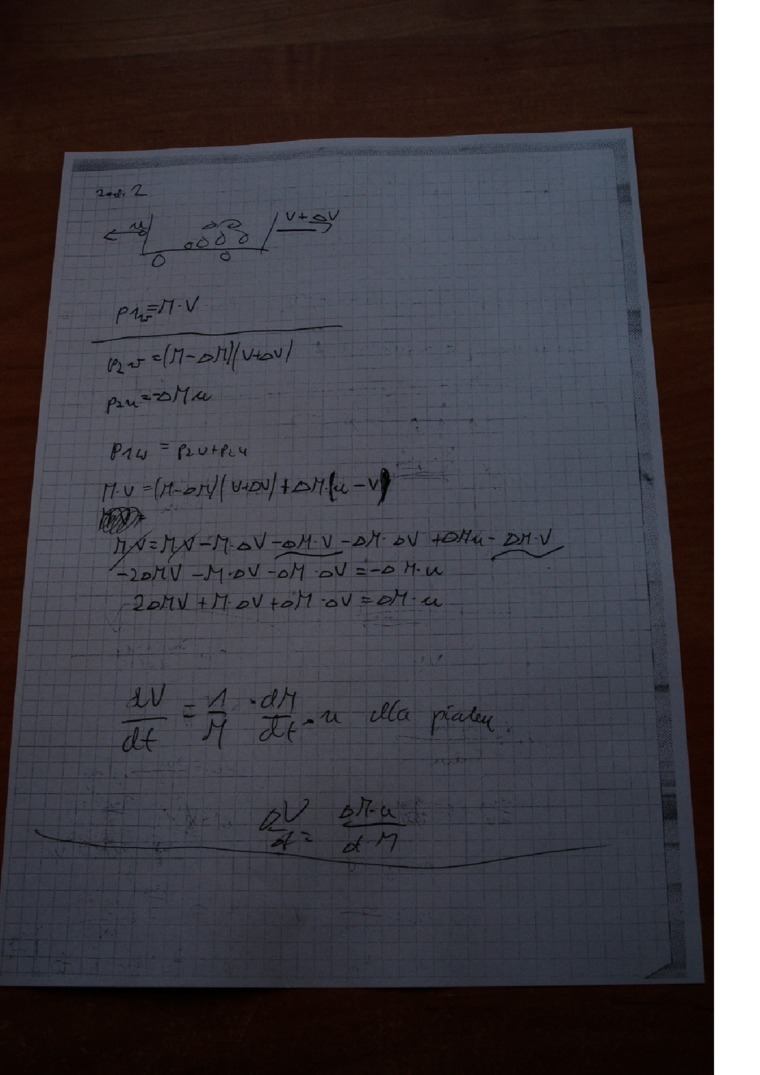 zad. 2
u V+ΔV
p1w=M·V
p2w=(M-ΔM)(V+ΔV)
p2u=ΔMu
p1w = p2u+p2u
M·V=(M-ΔM)(V+ΔV)+ΔM(u-V)
MV=MV-M·ΔV-ΔM·V-ΔM·ΔV+ΔMu-ΔM·V
-2ΔMV-M·ΔV-ΔM·ΔV=-ΔM·u
2ΔMV+M·ΔV+ΔM·ΔV=ΔM·u
dV/dt = 1/M · dM/dt · u dla piasku
ΔV/dt = ΔM·u/dt·M